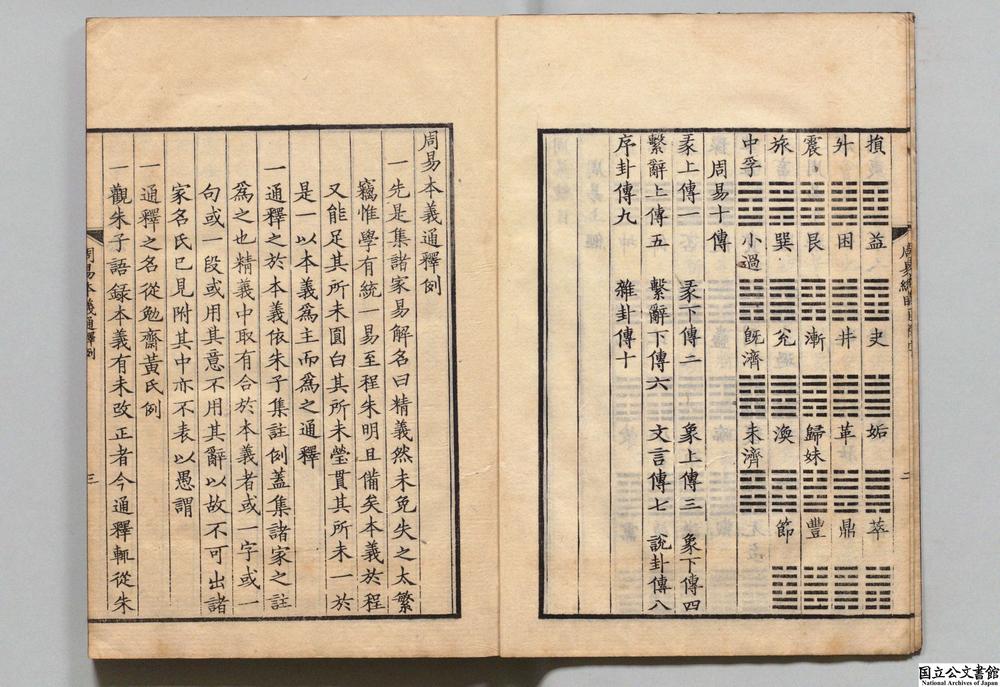 損 益 夬 姤 萃
升 困 井 革 鼎
震 艮 漸 歸妹 豐
旅 巽 兌 渙 節
中孚 小過 旣濟 未濟
周易十傳
彖上傳一 彖下傳二 象上傳三 象下傳四
繫辭上傳五 繫辭下傳六 文言傳七 說卦傳八
序卦傳九 雜卦傳十
二
周易本義通釋例
一先是集諸家易解名曰精義然未免失之太繁
竊惟學有統一易至程朱明且備矣本義於程
又能足其所未圓白其所未瑩貫其所未一於
是一以本義爲主而爲之通釋
一通釋之於本義依朱子集註例蓋集諸家之註
爲之也精義中取有合於本義者或一字或一
句或一段或用其意不用其辭以故不可出諸
家名氏已見附其中亦不表以愚謂
一通釋之名從勉齋黃氏例
一觀朱子語錄本義有未改正者今通釋輒從朱
周易本義通釋例
三
国立公文書館
National Archives of Japan